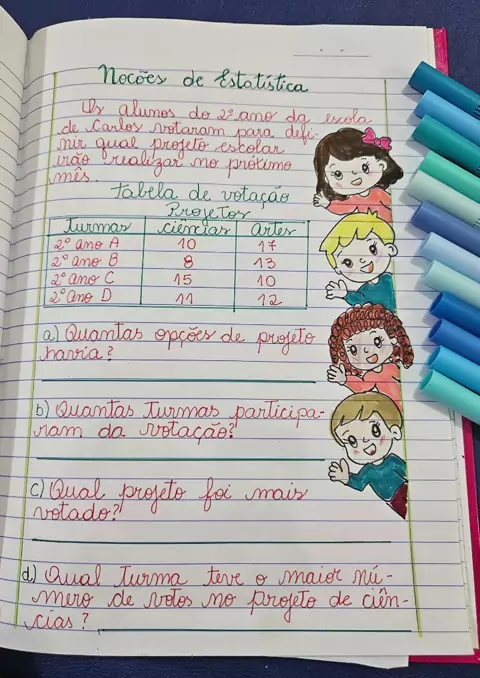 Nocões de Estatística
Os alunos do 2º ano da escola
de Carlos votaram para defi-
nir qual projeto escolar
irão realizar no próximo
mês.
Tabela de votação
Projetos
Turmas ciências Artes
2º ano A 10 17
2º ano B 8 13
2º ano C 15 10
2º ano D 11 12
a) Quantas opções de projeto
havia?
b) Quantas turmas participa-
ram da votação?
c) Qual projeto foi mais
votado?
d) Qual turma teve o maior nú-
mero de votos no projeto de ciên-
cias?